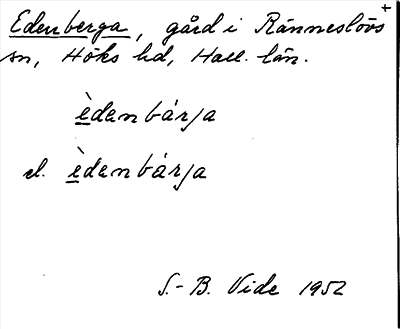 Edenberga, gård i Ränneslövs
sn, Höks hd, Hall. län.
èdenbárja
el. èdenbárja
S.-B. Vide 1952